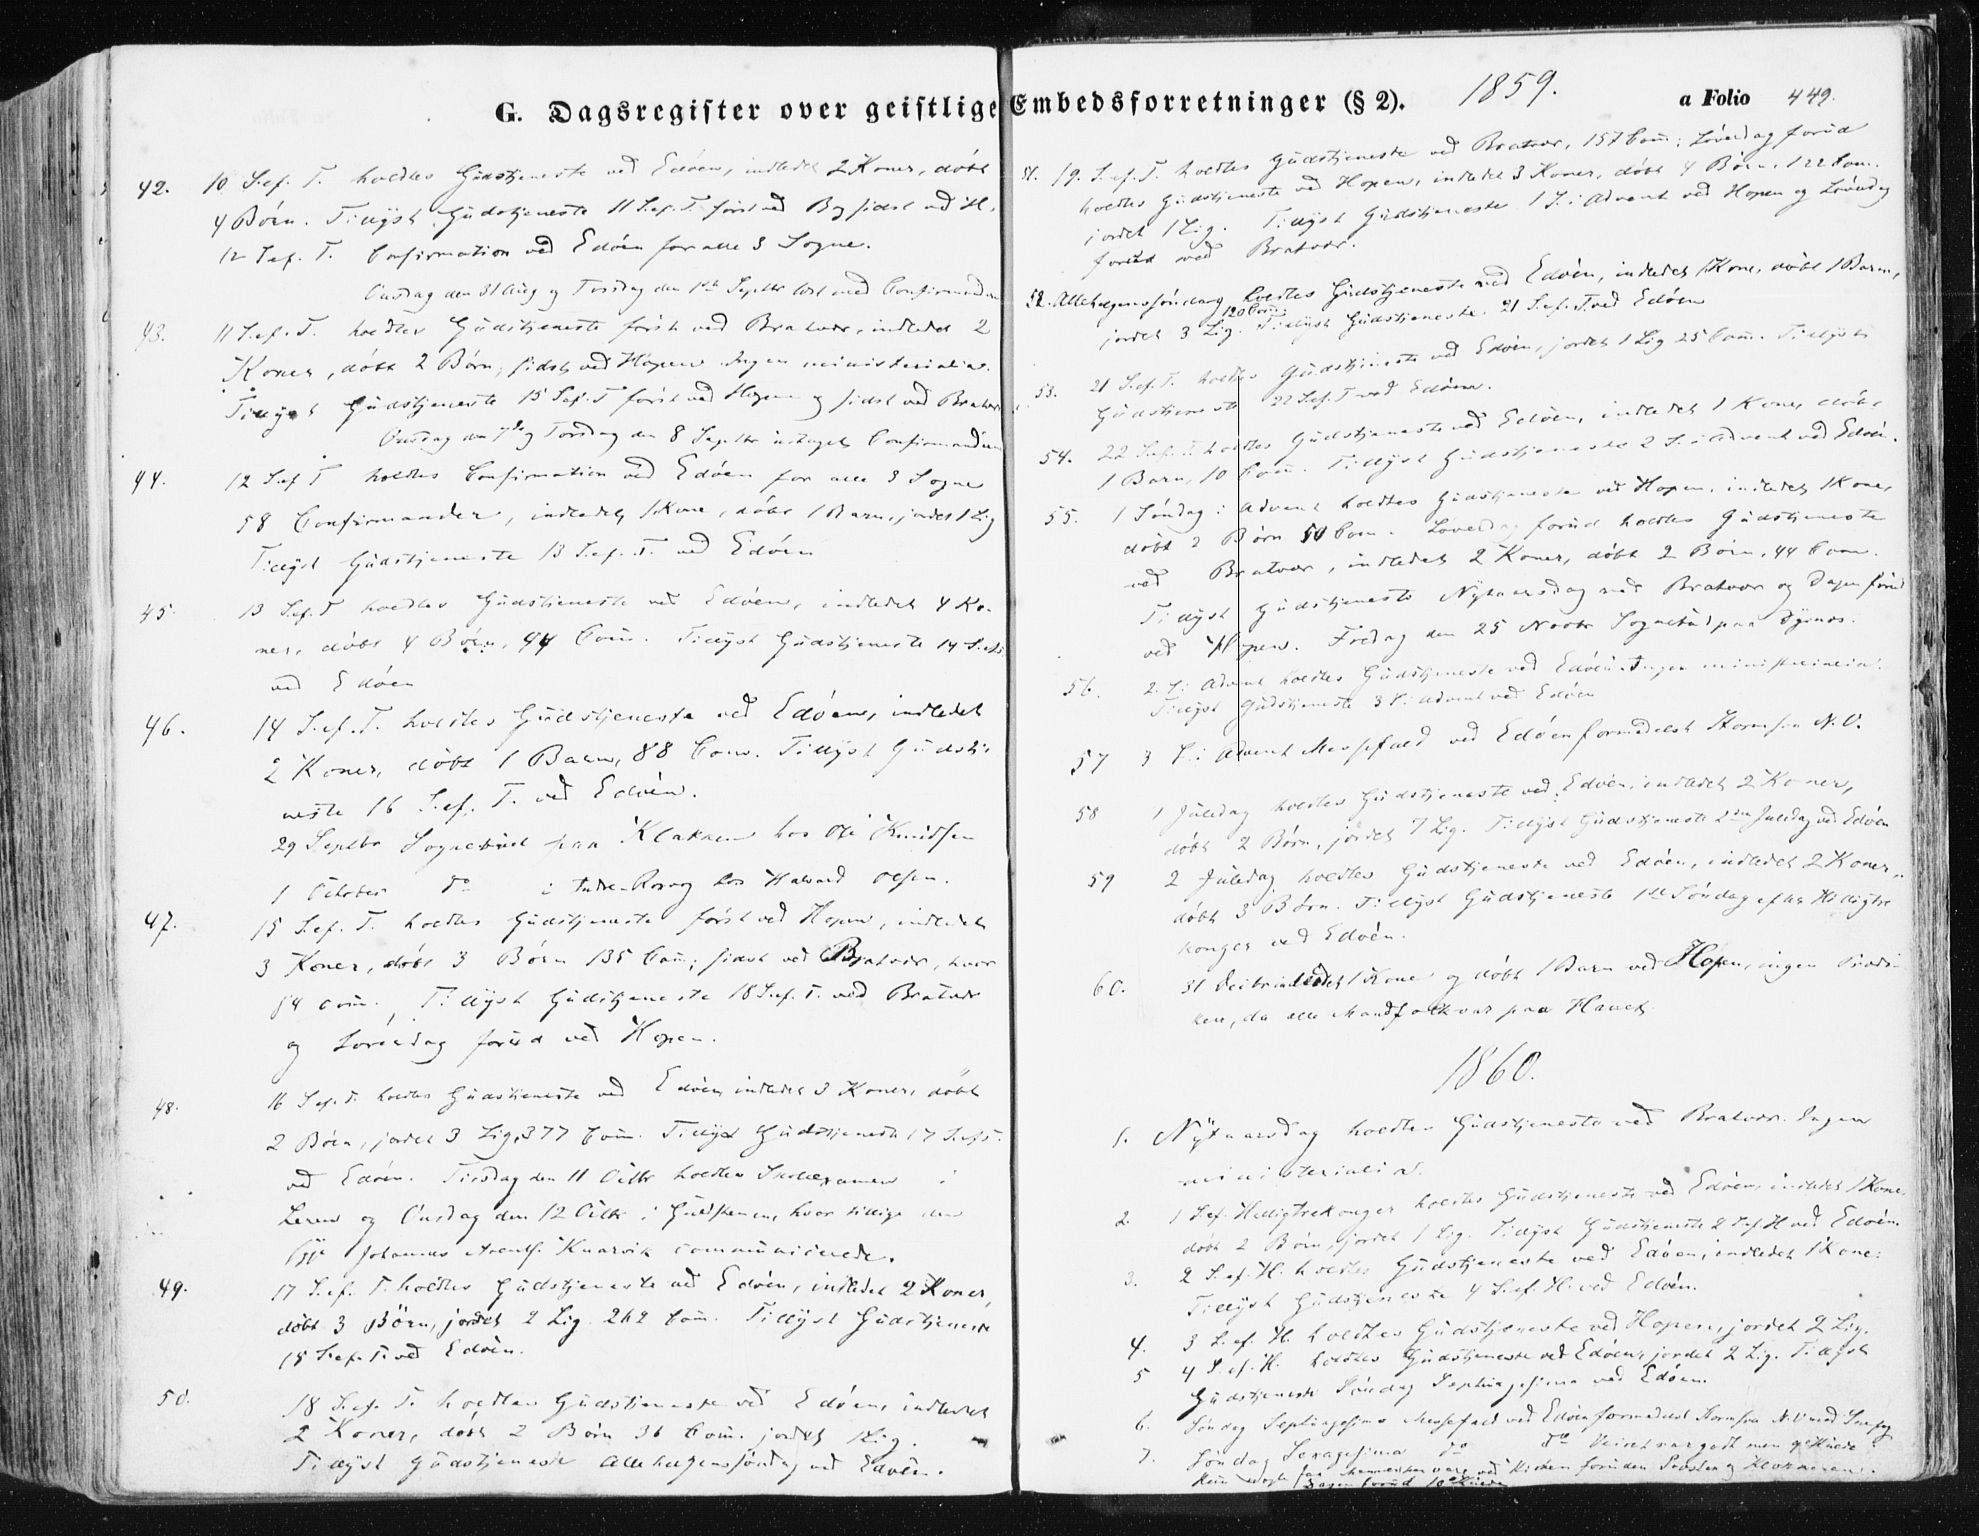 G. Dagsregister over geistlige Embedsforretninger (§ 2). 1859. a Folio 449.
42. 10 S. ef. T. holdtes Gudstjeneste ved Edöen, indledet 2 Koner, döbt
4 Börn. Tillyst Gudstjeneste 11 S. ef. T. först ved B og sidst ved H.
12 S. ef. T. Confirmation ved Edöen for alle 3 Sogne.
Onsdag den 31 Aug og Torsdag den 1ste Septbr læst med Confirmanderne
43. 11 S. ef. T. holdtes Gudstjeneste först ved Bratvær, indledet 2
Koner, döbt 2 Börn, sidst ved Hopen. Ingen ministerialia.
Tillyst Gudstjeneste 15 S. ef. T. först ved Hopen og sidst ved Bratvær
Onsdag den 7de og Torsdag den 8 Septbr Confirmanderne
44. 12 S. ef. T. holdtes Confirmation ved Edöen for alle 3 Sogne
58 Confirmander, indledet 1 Kone, döbt 1 Barn, jordet 1 Lig
Tillyst Gudstjeneste 13 S. ef. T. ved Edöen
45. 13 S. ef. T. holdtes Gudstjeneste ved Edöen, indledet 4 Ko-
ner, döbt 4 Börn, 44 Com. Tillyst Gudstjeneste 14 S. ef. T.
ved Edöen
46. 14 S. ef. T. holdtes Gudstjeneste ved Edöen, indledet
2 Koner, döbt 1 Barn, 88 Com. Tillyst Gudstje-
neste 16 S. ef. T. ved Edöen.
29 Septbr Sognebud paa Klakken hos Ole Knudsen
1 October do i Rosvog hos Halvard Olsen.
47. 15 S. ef. T. holdtes Gudstjeneste först ved Hopen, indledet
3 Koner, döbt 3 Börn 135 Com; sidst ved Bratvær, hvor
54 com. Tillyst Gudstjeneste 18 S. ef. T. ved Bratvær
og Löverdag forud ved Hopen.
48. 16 S. ef. T. holdtes Gudstjeneste ved Edöen, indledet 3 Koner, döbt
2 Börn, jordet 3 Lig, 377 Com. Tillyst Gudstjeneste 17 S. ef. T.
ved Edöen. Tirsdag den 11 Octbr holdtes Skoleexamen i
Leren og Onsdag den 12 Octbr i Guldstenen, hvor tillige den
syge Johannes Arents. Knarvik communicerede.
49. 17 S. ef. T. holdtes Gudstjeneste ved Edöen, indledet 2 Koner,
döbt 3 Börn, jordet 2 Lig 262 Com. Tillyst Gudstjeneste
18 S. ef. T. ved Edöen.
50. 18 S. ef. T. holdtes Gudstjeneste ved Edöen, indledet
2 Koner, döbt 2 Börn 36 Com. jordet 1 Lig.
Tillyst Gudstjeneste Allehelgenssöndag ved Edöen.
51. 19. S. ef. T. holdtes Gudstjeneste ved Bratvær, 157 Com; Löverdag forud
holdtes Gudstjeneste ved Hopen, indledet 3 Koner, döbt 4 Börn, 122 Com.
jordet 1 Lig. Tillyst Gudstjeneste 1 S. i Advent ved Hopen og Löverdag
forud ved Bratvær.
52. Allehelgenssöndag holdtes Gudstjeneste ved Edöen, indledet 1 Kone, döbt 1 Barn,
jordet 3 Lig. 120 Com. Tillyst Gudstjeneste 21 S. ef. T. ved Edöen
53. 21 S. ef. T. holdtes Gudstjeneste ved Edöen, jordet 1 Lig 25 Com. Tillyst
Gudstjeneste 22 S. ef. T. ved Edöen.
54. 22 S. ef. T. holdtes Gudstjeneste ved Edöen, indledet 1 Kone, döbt
1 Barn, 10 Com. Tillyst Gudstjeneste 2 S. i Advent ved Edöen.
55. 1 Söndag i Advent holdtes Gudstjeneste ved Hopen, indledet 1 Kone,
döbt 2 Börn 50 Com. Löverdag forud holdtes Gudstjeneste
ved Bratvær, indledet 2 Koner, döbt 2 Börn, 44 Com.
Tillyst Gudstjeneste Nytaarsdag ved Bratvær og Dagen forud
ved Hopen. Fredag den 25 Novbr Sognebud paa Dyrnæs.
56. 2 S. i Advent holdtes Gudstjeneste ved Edöen. Ingen ministerialia.
Tillyst Gudstjeneste 3 S. i Advent ved Edöen
57 3 S. i Advent Messefald ved Edöen formedelst Storm fra N.V.
58 1 Juledag holdtes Gudstjeneste ved Edöen, indledet 2 Koner,
döbt 2 Börn, jordet 7 Lig. Tillyst Gudstjeneste 2den Juledag ved Edöen
59 2 Juledag holdtes Gudstjeneste ved Edöen, indledet 2 Koner,
döbt 3 Börn. Tillyst Gudstjeneste 1ste Söndag efter Helligtre
konger ved Edöen.
60. 31 Decbr indledet 1 Kone og döbt 1 Barn ved Hopen, ingen Prædi-
ken, da alle Mandfolk var paa Havet.
1860.
1. Nytaarsdag holdtes Gudstjeneste ved Bratvær. Ingen
ministerialia.
2. 1 S. ef. Helligtrekonger holdtes Gudstjeneste ved Edöen, indledet 1 Kone,
döbt 2 Börn, jordet 1 Lig. Tillyst Gudstjeneste 2 S. ef. H. ved Edöen.
3. 2 S. ef. H. holdtes Gudstjeneste ved Edöen, indledet 1 Kone.
Tillyst Gudstjeneste 4 S. ef. H. ved Edöen.
4. 3 S. ef. H. holdtes Gudstjeneste ved Hopen, jordet 2 Lig.
5 4 S. ef. H. holdtes Gudstjeneste ved Edöen, jordet 2 Lig. Tillyst
Gudstjeneste Söndag Septuagesima ved Edöen.
6. Söndag Septuagesima Messefald ved Edöen formedelst Storm fra N.V. med Snefog
7. Söndag Sexagesima do do Veiret var godt men
Kun nogle faa Mennesker vare ved Kirken foruden Præsten og Klokkeren.
Dagen forud